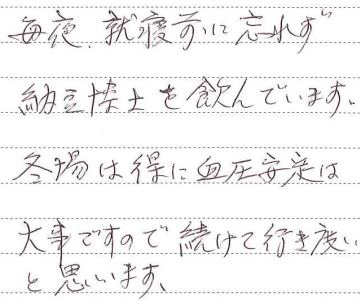 毎夜、就寝前に忘れず
納豆博士を飲んでいます。
冬場は得に血圧安定は
大事ですので続けて行き度い
と思います。